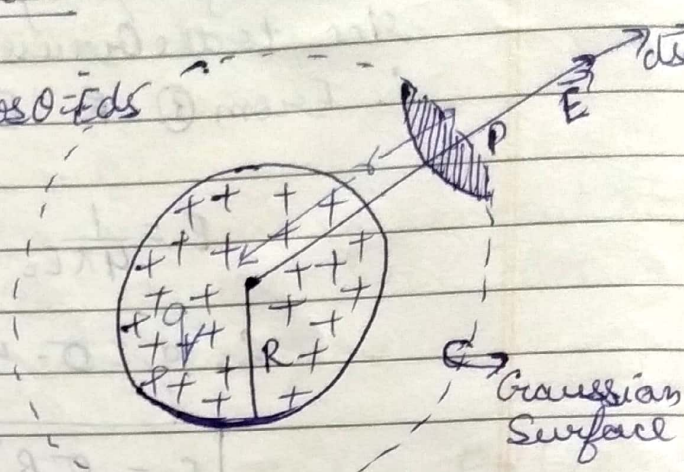 osθ=Eds
ds
E
P
r
+ + + +
+ + + +
+ + + +
+ + +
+ + +
+ + +
R
Gaussian
Surface